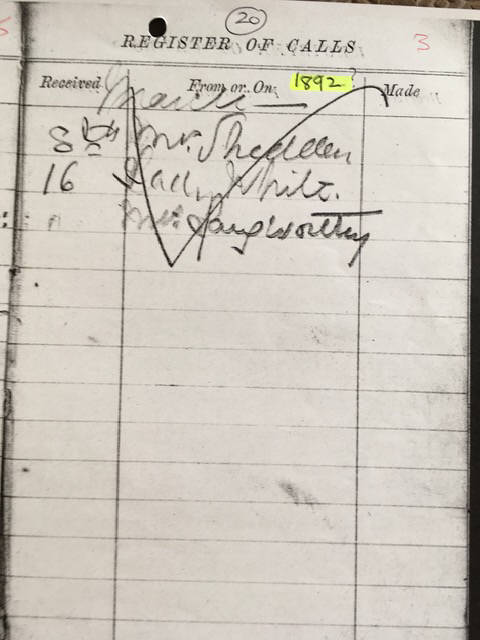 20
REGISTER OF CALLS
3
Received From or On 1892 Made
March
8th Mrs. Shedden
16 Lady White.
" Mrs. Langworthy